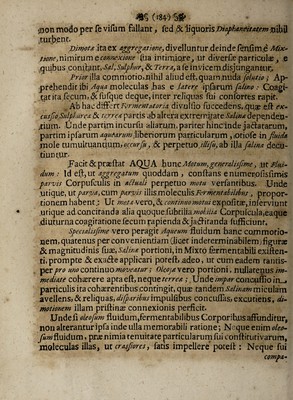 (184)
non modo per se visum fallant, sed & liquoris Diaphaneitatem nihil
turbent.
Dimota ita ex aggregatione, divelluntur deinde sensim è Mix-
tione, nimirum è connexione sua intimiore, ut diversæ particulæ, e
quibus constant, Sal, Sulphur, & Terra, a se invicem disjungantur.
Prior illa commotio, nihil aliud est, quam nuda solutio; Ap-
prehendit ibi Aqua moleculas has e latere ipsarum salino: Coagi-
tat ita secum, & susque deque, inter reliquos sui consortes rapit.
Ab hac differt Fermentatoria divulsio succedens, quæ est ex-
cussio Sulphurea & terrea partis ab altera extremitate Salina dependen-
tium. Unde partim incursu aliarum, pariter hincinde jactatarum,
partim ipsarum aquearum liberiorum particularum, otiose in fluida
mole tumultuantium, occursu, & perpetuo illisu, ab illa salina decu-
tiuntur.
Facit & præstat AQUA hunc Motum, generalissime, ut Flui-
dum: Id est, ut aggregatum quoddam, constans e numerosissimis
parvis Corpusculis in actuali perpetuo motu versantibus. Unde
utique, ut parva, cum parvis illis moleculis Fermentabilibus, propor-
tionem habent: Ut mota vero, & continuo motus expositæ, inserviunt
utique ad concitanda alia quoque subtilia mobilia Corpuscula, eaque
diuturna coagitatione secum rapienda & jactitanda sufficiunt.
Specialissime vero peragit Aqueum fluidum hanc commotio-
nem, quatenus per convenientiam (licet indeterminabilem figuræ
& magnitudinis suæ, Salinæ portioni, in Mixto fermentabili existen-
ti, prompte & exacte applicari potest adeo, ut cum eadem ranis-
per pro uno continuo moveatur; Oleosæ vero portioni, nullatenus im-
mediate cohærere apta est, neque terreæ: Unde impar concussio in
particulis ita cohærentibus contingit, quæ tandem Salinam miculam
avellens, & reliquas, disparibus impulsibus concussas, excutiens, di-
motionem illam pristinæ connexionis perficit.
Unde si oleosum fluidum, fermentabilibus Corporibus affunditur,
non alterantur ipsa inde ulla memorabili ratione; Neque enim oleo-
sum fluidum, præ nimia tenuitate particularum sui constitutivarum,
moleculas illas, ut crassiores, satis impellere potest: Neque sui
compa-